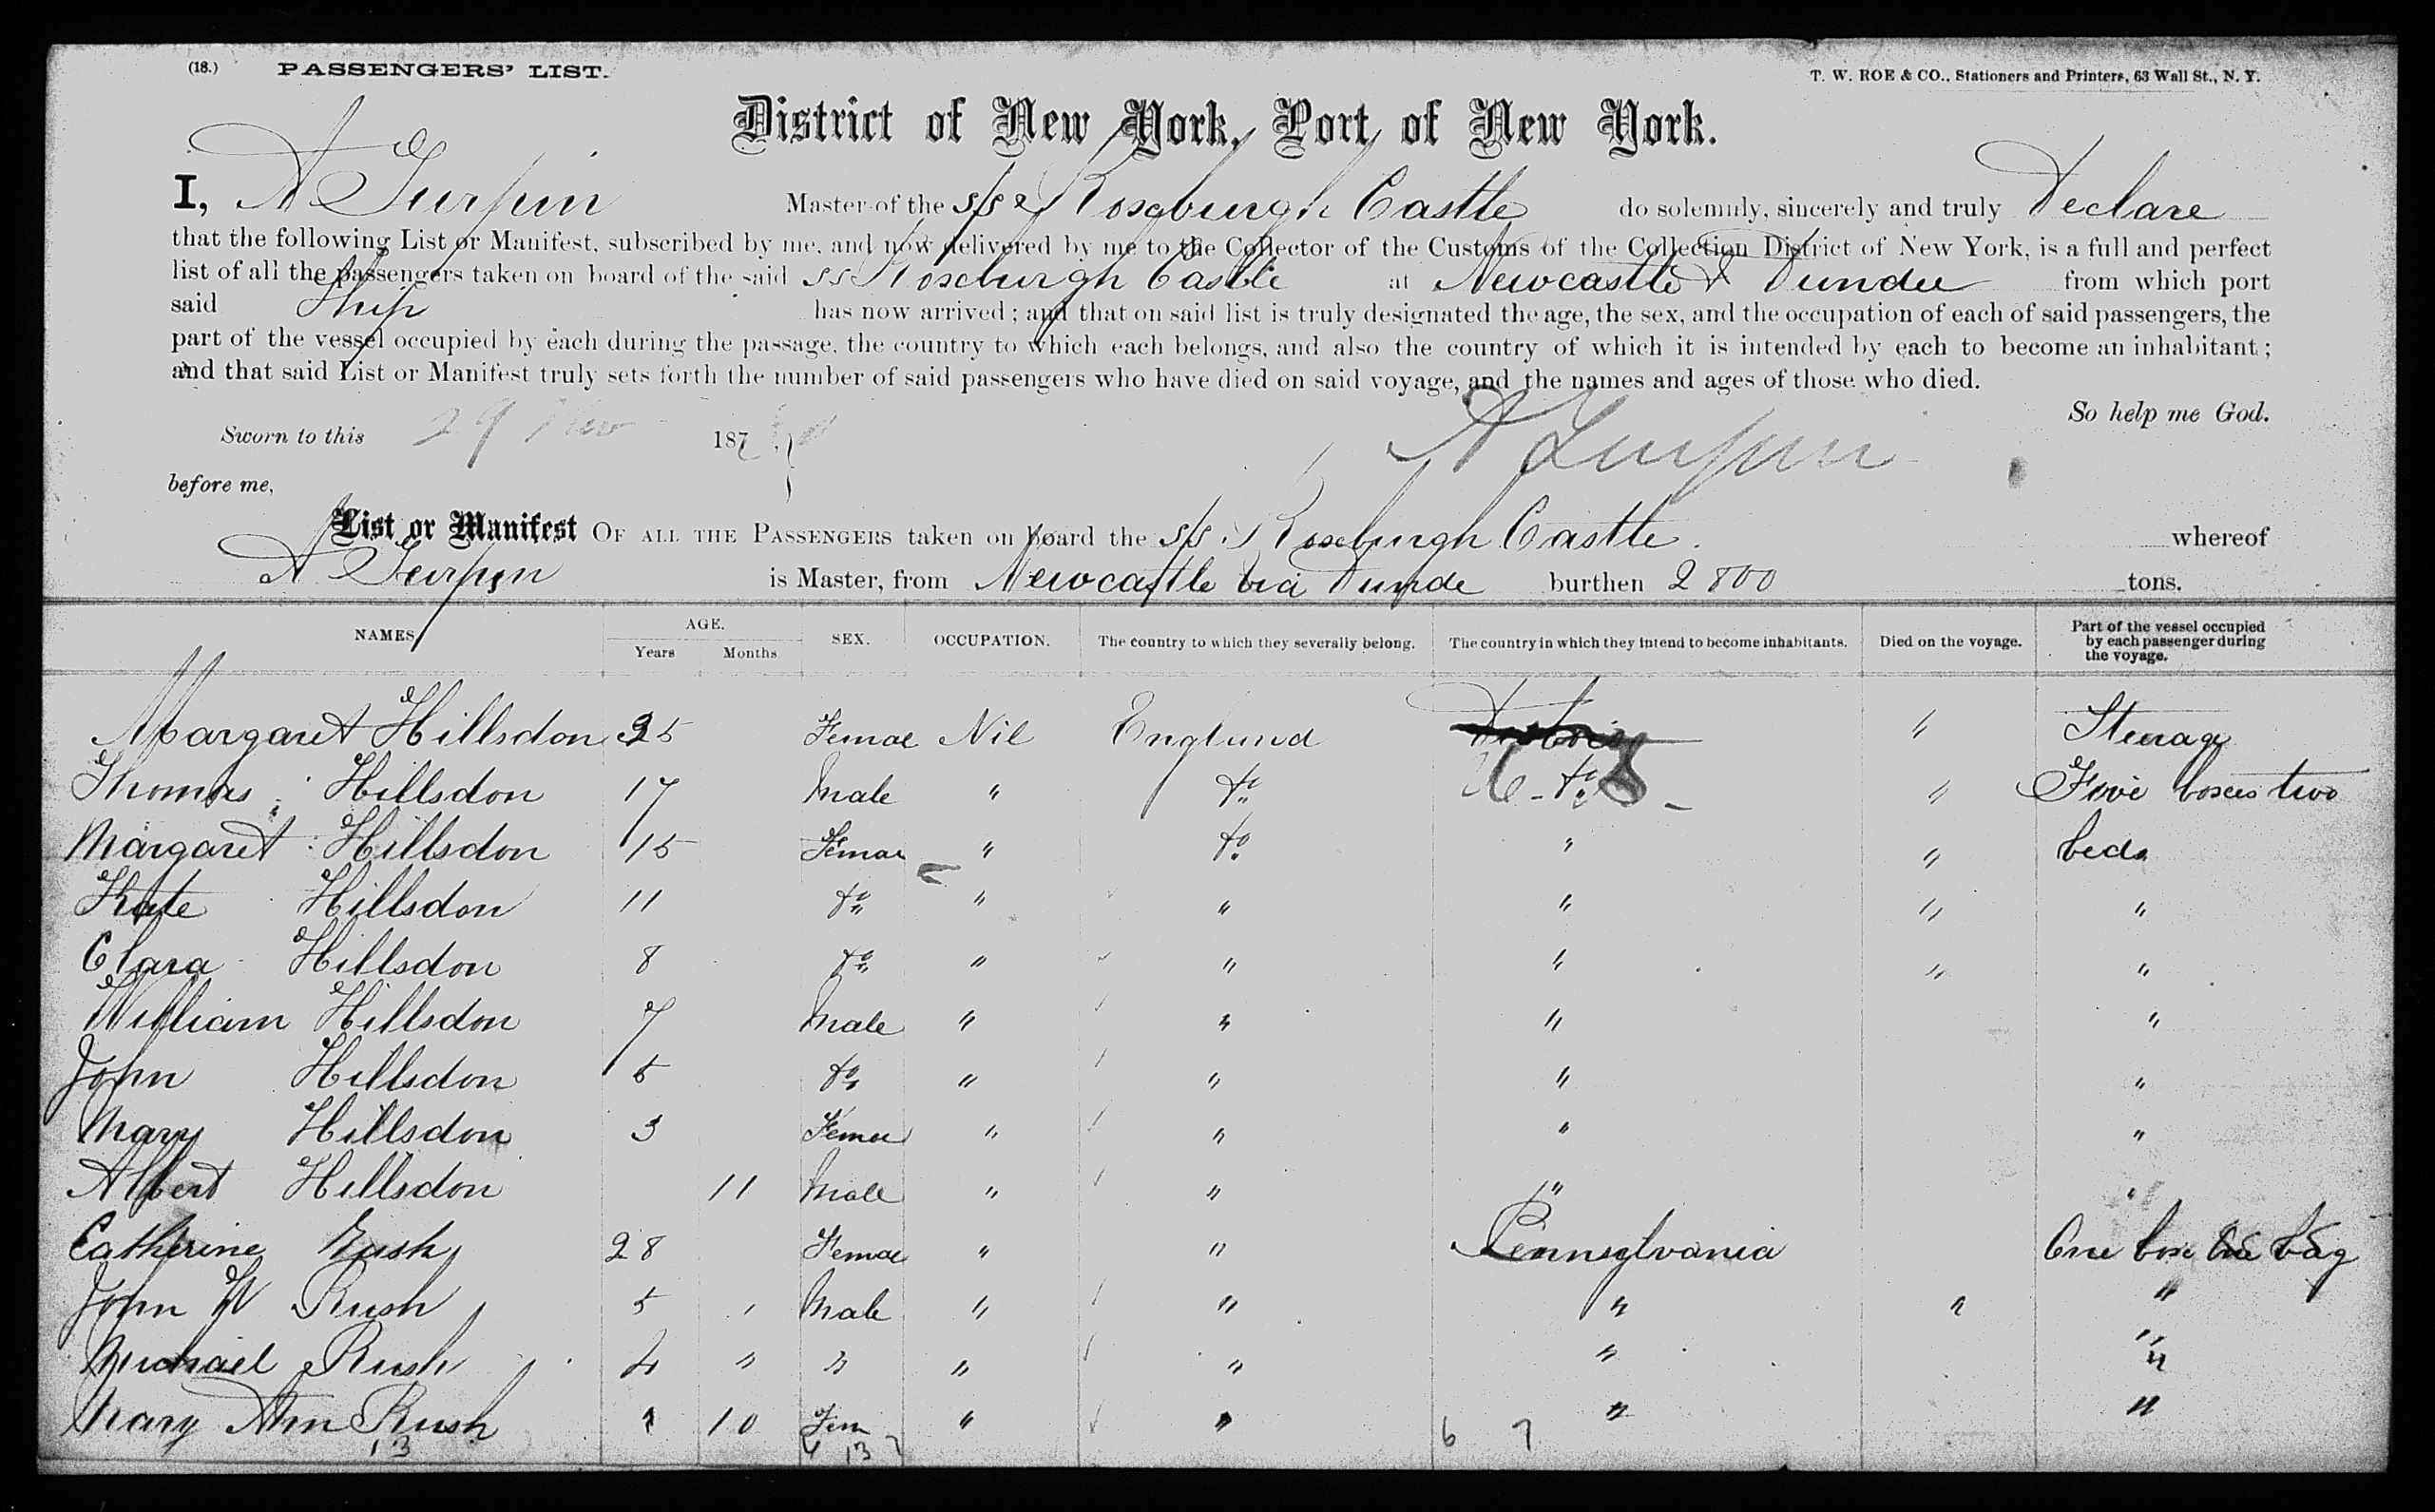 (18.) PASSENGERS' LIST. T. W. ROE & CO., Stationers and Printers, 63 Wall St., N. Y.
District of New York, Port of New York.
I, A Turpin Master of the s/s Roxburgh Castle do solemnly, sincerely and truly Declare
that the following List or Manifest, subscribed by me, and now delivered by me to the Collector of the Customs of the Collection District of New York, is a full and perfect
list of all the passengers taken on board of the said ss Roxburgh Castle at Newcastle & Dundee from which port
said Ship has now arrived; and that on said list is truly designated the age, the sex, and the occupation of each of said passengers, the
part of the vessel occupied by each during the passage, the country to which each belongs, and also the country of which it is intended by each to become an inhabitant;
and that said List or Manifest truly sets forth the number of said passengers who have died on said voyage, and the names and ages of those who died.
So help me God.
Sworn to this 29 Nov 187
A Turpin
before me,
List or Manifest OF ALL THE PASSENGERS taken on board the s/s. Roxburgh Castle. whereof
A Turpin is Master, from Newcastle via Dunde burthen 2800 tons.
NAMES AGE. Years Months SEX. OCCUPATION. The country to which they severally belong. The country in which they intend to become inhabitants. Died on the voyage. Part of the vessel occupied by each passenger during the voyage.
Margaret Hillsdon 35 Femae Nil England " Steerage
Thomas Hillsdon 17 Male " do U S " Five boxes two
Margaret Hillsdon 15 Femae " do " " beds
Kate Hillsdon 11 do " " " " "
Clara Hillsdon 8 do " " " " "
William Hillsdon 7 Male " " " "
John Hillsdon 5 do " " " "
Mary Hillsdon 3 Femae " " " "
Albert Hillsdon 11 Male " " " "
Catherine Rush 28 Femae " " Pennsylvania One box One bag
John W Rush 5 Male " " " " "
Michael Rush 4 " " " " " "
Mary Ann Rush 1 10 Fem " " " "
13 4 13 7 6 7